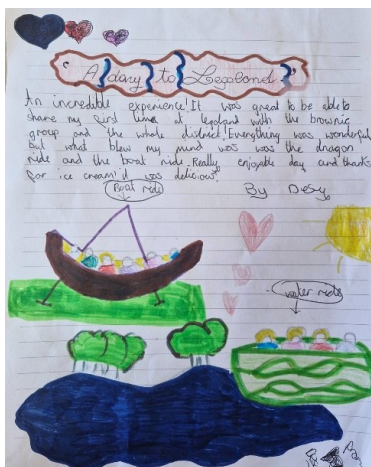 A day to Legoland
An incredible experience! It was great to be able to
share my first time at legoland with the brownie
group and the whole district! Everything was wonderful
but what blew my mind was was the dragon
ride and the boat ride. Really enjoyable day and thanks
for ice cream it was delicious!
By Desy
Boat ride
water ride